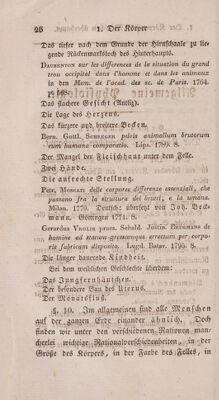 26 1. Der Körper
Das tiefer nach dem Grunde der Hirnschaale zu liegende Rückenmarkloch des Hinterhaupts.
DAUBENTON sur les differences de la situation du grand
trou occipital dans l'homme et dans les animaux
in den Mem. de l'acad. des sc. de Paris. 1764.
p. 568.
Das flachere Gesicht (Antliz).
Die Lage des Herzens.
Das kürzere und breitere Becken.
Bern. Gottl. SCHREGER pelvis animalium brutorum
cum humana comparatio. Lips. 1789. 8.
Der Mangel der Fleischhaut unter dem Felle.
Zwei Hände.
Die aufrechte Stellung.
Petr. MOSCATI delle corporee differenze essenziali, che
passano fra la struttura dei bruti, e la umana.
Milan. 1770. Deutsch: übersezt von Joh. Beckmann. Göttingen 1771. 8.
GERARDUS VROLIK praes. Sebald. Justin. BRUGMANS de
homine ad statum gressumque erectum per corporis fabricam disposito. Lugd. Batav. 1795. 8.
Die länger dauernde Kindheit.
Bei dem weiblichen Geschlechte überdem:
Das Jungfernhäutchen.
Der besondere Bau des Uterus.
Der Monatsfluß.
§. 10. Im allgemeinen sind alle Menschen
auf der ganzen Erde einander ähnlich. Doch
finden wir unter den verschiedenen Nationen mancherlei wichtige Nationalverschiedenheiten, in der
Größe des Körpers, in der Farbe des Felles, in